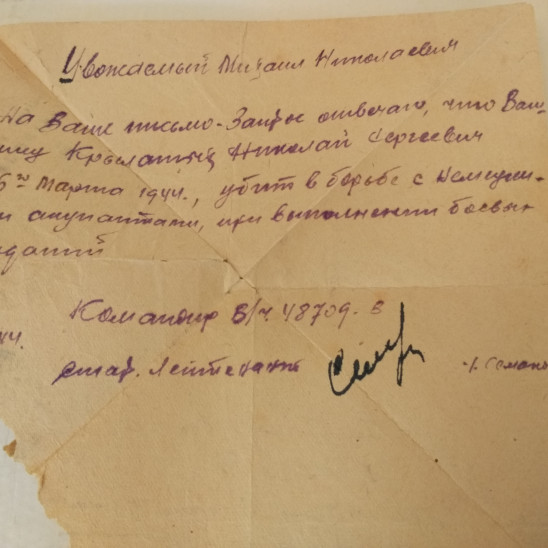 Уважаемый Михаил Николаевич
На Ваше письмо-Запрос отвечаю, что Ваш
Крылатый Николай Сергеевич
Марта 1944., убит в борьбе с Немецки-
и акупантами, при выполнении боевых
аданий
Командир в/ч. 48709-в
44.
стар. Лейтенант